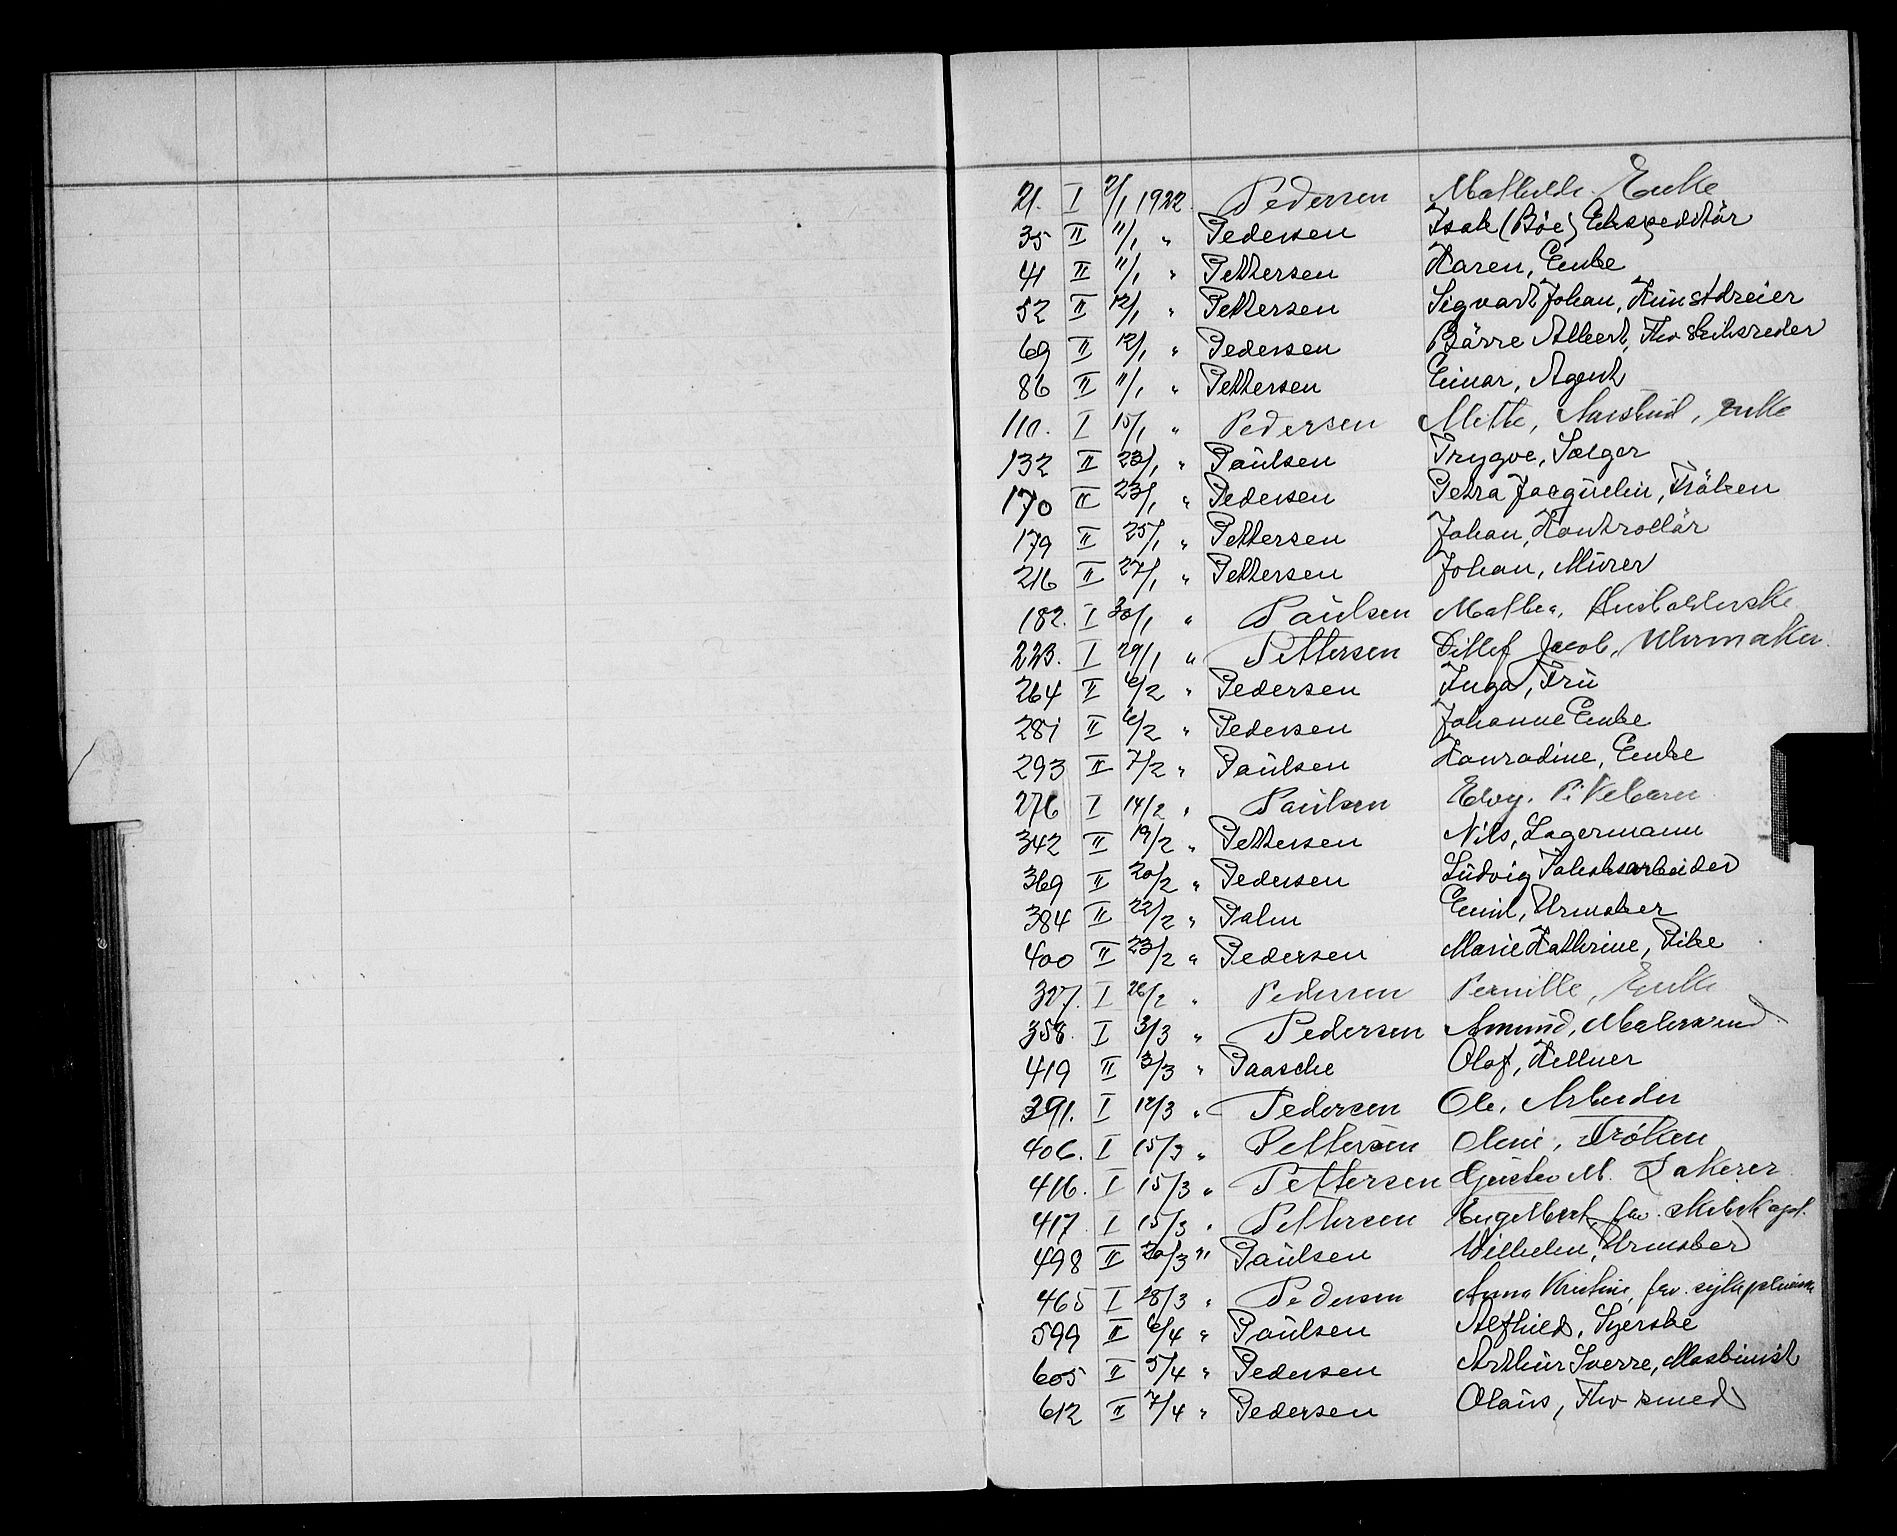 21. I 7/1 1922. Pedersen Mathilde Enke
35 II 11/1 " Pedersen Isak (Böe) Ekspeditör
41 II 11/1 " Pettersen Karen, Enke
52 II 12/1 " Pettersen Sigvart Johan, Kunstdreier
69 II 12/1 " Pedersen Börre Albert, Fhv Skibsreder
86 II 11/1 " Pettersen Einar, Agent
110. I 15/1 " Pedersen Mette, Enke
132 II 23/1 " Paulsen Trygve, Sælger
170 II 23/1 " Pedersen Petra Jacquelin, Fröken
179 II 25/1 " Pettersen Johan, Kontrollör
216 II 27/1 " Pettersen Johan, Murer
182. I 30/1 " Paulsen Mathea, Husholderske
223. I 29/1 " Pettersen Ditlef Jacob, Uhrmaker.
264 II 6/2 " Pedersen Inga, Fru
281 II 6/2 " Pedersen Johanne Enke
293 II 7/2 " Paulsen Konradine, Enke
276 I 14/2 " Paulsen Edvy. Pikebarn
342 II 19/2 " Pettersen Nils, Lagermann
369 II 20/2 " Pedersen Ludvig Fabrikarbeider
384 II 22/2 " Palm Emil, Urmaker
400 II 23/2 " Pedersen Marie Kathrine, Pike
327. I 26/2 " Pedersen Pernille, Enke
358. I 3/3 " Pedersen Amund, Malersvend
419 II 3/3 " Paasche Olaf, Kellner
391. I 12/3 " Pedersen Ole, Arbeider
406. I 15/3 " Pettersen Oline, Frøken
416. I 15/3 " Pettersen Gustav M. Lakerer
417. I 15/3 " Pettersen Engelbert, fhv. Skibskapt.
498 II 20/3 " Paulsen Wilhelm, Urmaker
465 I 28/3 " Pedersen Anna Kristine, fhv. sykepleierske
599 II 6/4 " Paulsen Alfhild, Syerske
605 II 5/4 " Pedersen Arthur Sverre, Maskinist
612 II 7/4 " Pedersen Olaus, Fhv smed